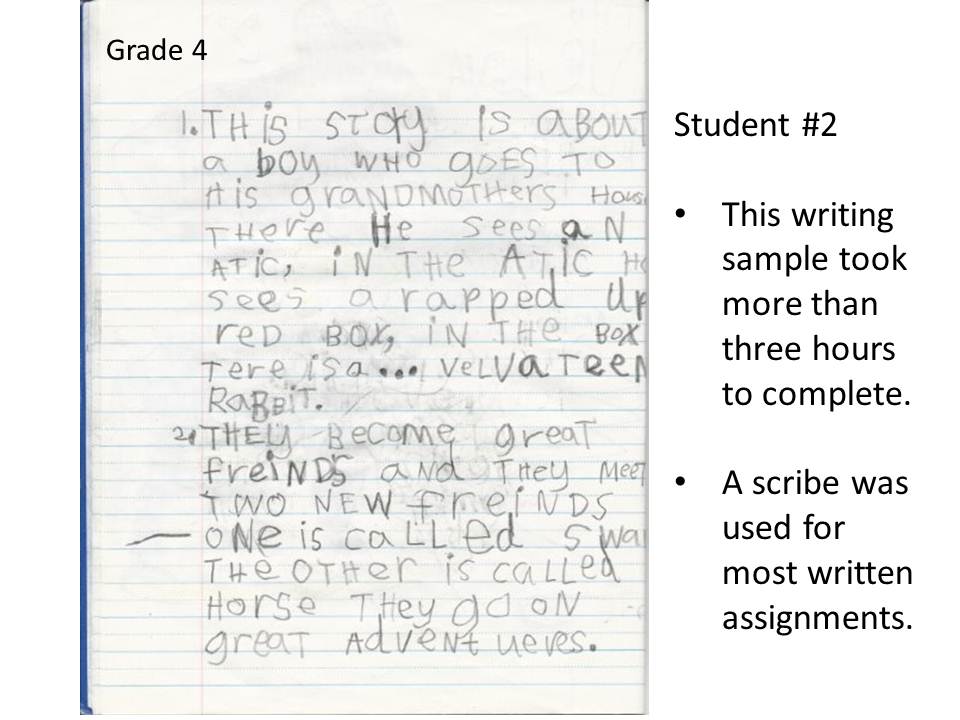 Grade 4
1. THis story is ABOUT
a boy WHO gOES TO
His graNDMOTHers Hous
THere He sees aN
ATiC, iN THe ATiC He
sees a rapped Up
reD BOX, iN THE BOX
Tere is a... VeLVaTeeN
RaBBiT.
2. THEY BeCome great
freiNDs aND THey Meet
TWO NEW freiNDS
— ONe is caLLed Swa
THe OTHer is caLLed
HOrse THey go ON
greaT ADVeNTueves.
Student #2
• This writing
sample took
more than
three hours
to complete.
• A scribe was
used for
most written
assignments.